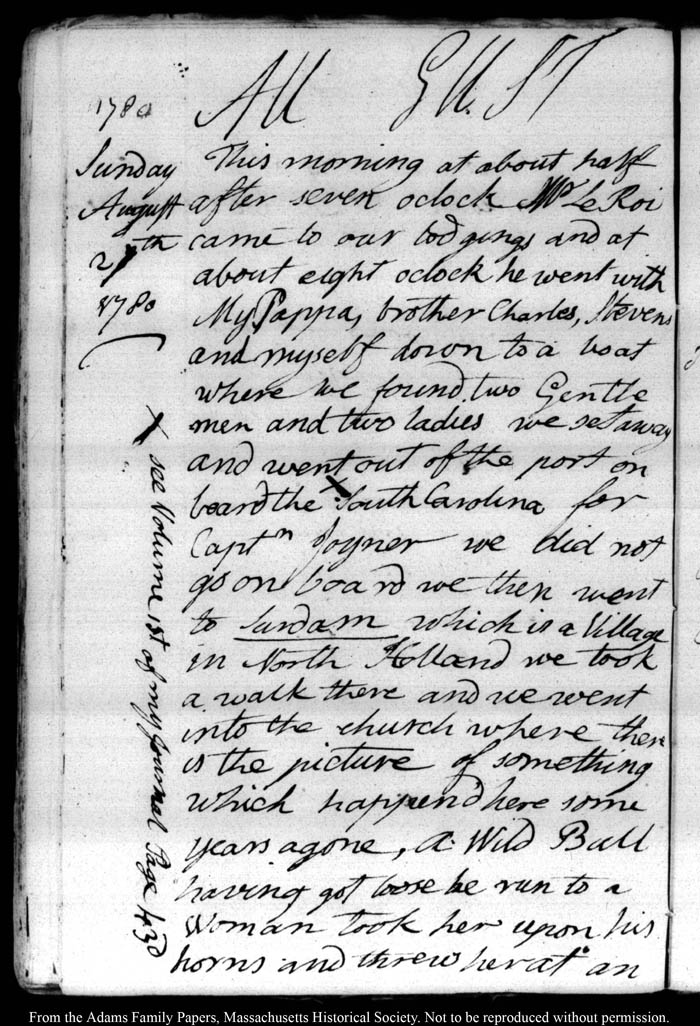 1780
AU GUST
Sunday
August
27th
1780
This morning at about half
after seven oclock Mr. Le Roi
came to our lodgings and at
about eight oclock he went with
My Pappa, brother Charles, Stevens
and myself down to a boat
where we found two Gentle
men and two ladies we set away
and went out of the port on
board the X South Carolina for
Captn Joyner we did not
go on board we then went
to Sardam which is a Village
in North Holland we took
a walk there and we went
into the church where there
is the picture of something
which happen'd here some
years agone, a Wild Bull
having got loose he run to a
Woman took her upon his
horns and threw her at an
X see Volume 1st of my Journal Page 430
From the Adams Family Papers, Massachusetts Historical Society. Not to be reproduced without permission.